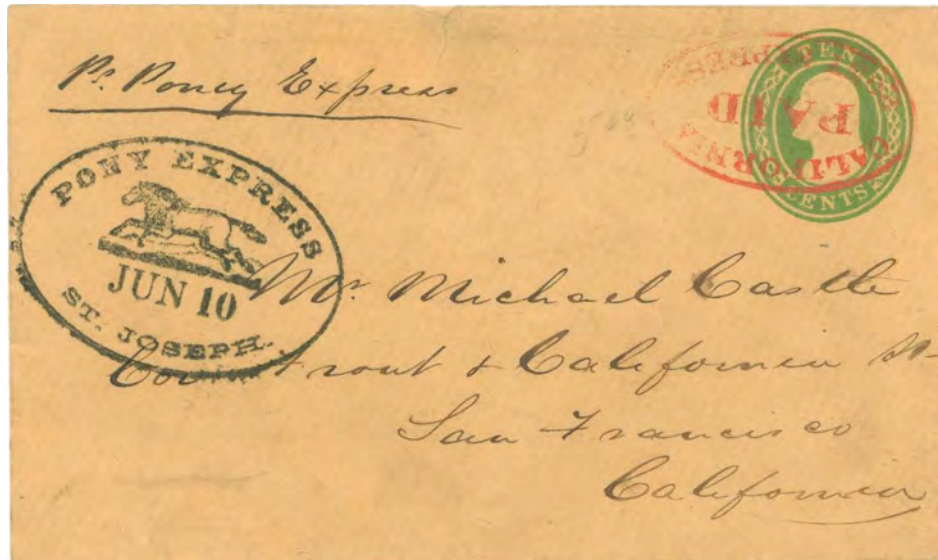 Pr. Poney Express
TEN
CENTS
CALIFORNIA
PAID
PONY EXPRESS
JUN 10
ST. JOSEPH.
Mr. Michael Castle
Cor Front & California St
San Francisco
California